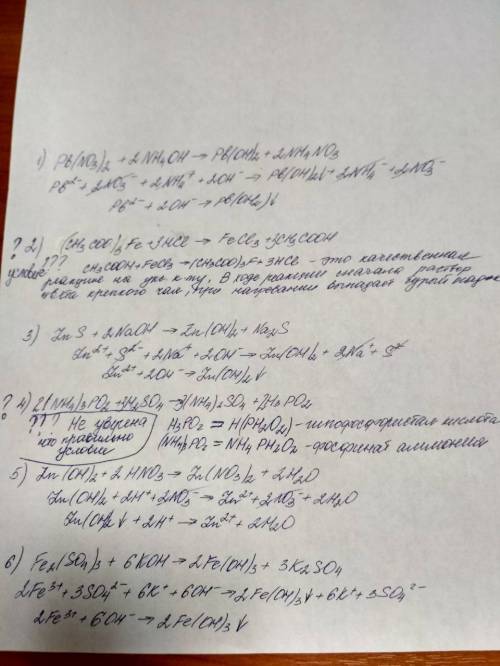 1) Pb(NO3)2 + 2NH4OH → Pb(OH)2 + 2NH4NO3
Pb2- + 2NO3- + 2NH4+ + 2OH- → Pb(OH)2↓ + 2NH4- + 2NO3-
Pb2- + 2OH- → Pb(OH)2↓
? 2) (CH3COO)3Fe + 3HCl → FeCl3 + 3CH3COOH
условие ??? CH3COOH + FeCl3 → (CH3COO)3F + 3HCl - это качественная
реакция на укс к-ту. В ходе реакции сначала раствор
цвета крепкого чая, при нагревании выпадает бурый осадок
3) ZnS + 2NaOH → Zn(OH)2 + Na2S
Zn2+ + S2- + 2Na+ + 2OH- → Zn(OH)2 + 2Na+ + S2-
Zn2+ + 2OH- → Zn(OH)2↓
? 4) 2(NH4)3PO2 + 3H2SO4 → 3(NH4)2SO4 + 2H3PO2
??? Не уверена что правильно условие
H3PO2 = H(PH2O2) - гипофосфористая кислота
(NH4)3PO2 = NH4PH2O2 - фосфинат аммония
5) Zn(OH)2 + 2HNO3 → Zn(NO3)2 + 2H2O
Zn(OH)2 + 2H+ + 2NO3- → Zn2+ + 2NO3- + 2H2O
Zn(OH)2↓ + 2H+ → Zn2+ + 2H2O
6) Fe2(SO4)3 + 6KOH → 2Fe(OH)3 + 3K2SO4
2Fe3+ + 3SO4 2- + 6K+ + 6OH- → 2Fe(OH)3↓ + 6K+ + 3SO4 2-
2Fe3+ + 6OH- → 2Fe(OH)3↓